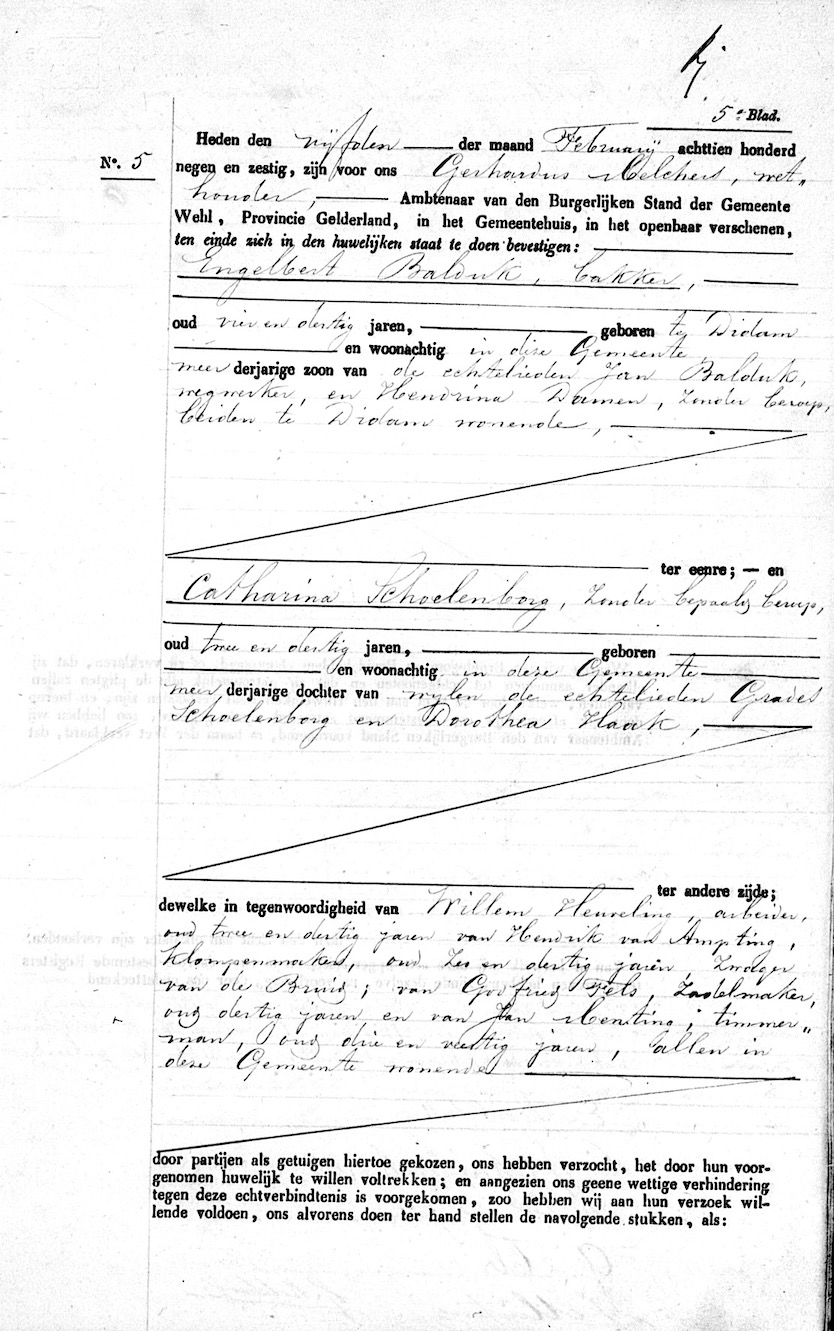 5e Blad.
No. 5
Heden den vijfden der maand February achttien honderd
negen en zestig, zijn voor ons Gerhardus Melchers, wet„
houder, Ambtenaar van den Burgerlijken Stand der Gemeente
Wehl, Provincie Gelderland, in het Gemeentehuis, in het openbaar verschenen,
ten einde zich in den huwelijken staat te doen bevestigen:
Engelbert Balduk, bakker,
oud vier en dertig jaren, geboren te Didam
en woonachtig in deze Gemeente
meer derjarige zoon van de echtelieden Jan Balduk,
wegwerker, en Hendrina Damen, zonder beroep,
beiden te Didam wonende,
ter eenre; — en
Catharina Schoelenborg, zonder bepaald beroep,
oud twee en dertig jaren, geboren
en woonachtig in deze Gemeente
meer derjarige dochter van wijlen de echtelieden Grades
Schoelenborg en Dorothea Haak,
ter andere zijde;
dewelke in tegenwoordigheid van Willem Heuveling, arbeider,
oud twee en dertig jaren van Hendrik van Ampting,
klompenmaker, oud zes en dertig jaren, zwager
van de Bruid; van Godfried Fels, zadelmaker,
oud dertig jaren en van Jan Menting, timmer„
man, oud drie en veertig jaren, allen in
deze Gemeente wonende
door partijen als getuigen hiertoe gekozen, ons hebben verzocht, het door hun voor-
genomen huwelijk te willen voltrekken; en aangezien ons geene wettige verhindering
tegen deze echtverbindtenis is voorgekomen, zoo hebben wij aan hun verzoek wil-
lende voldoen, ons alvorens doen ter hand stellen de navolgende stukken, als: